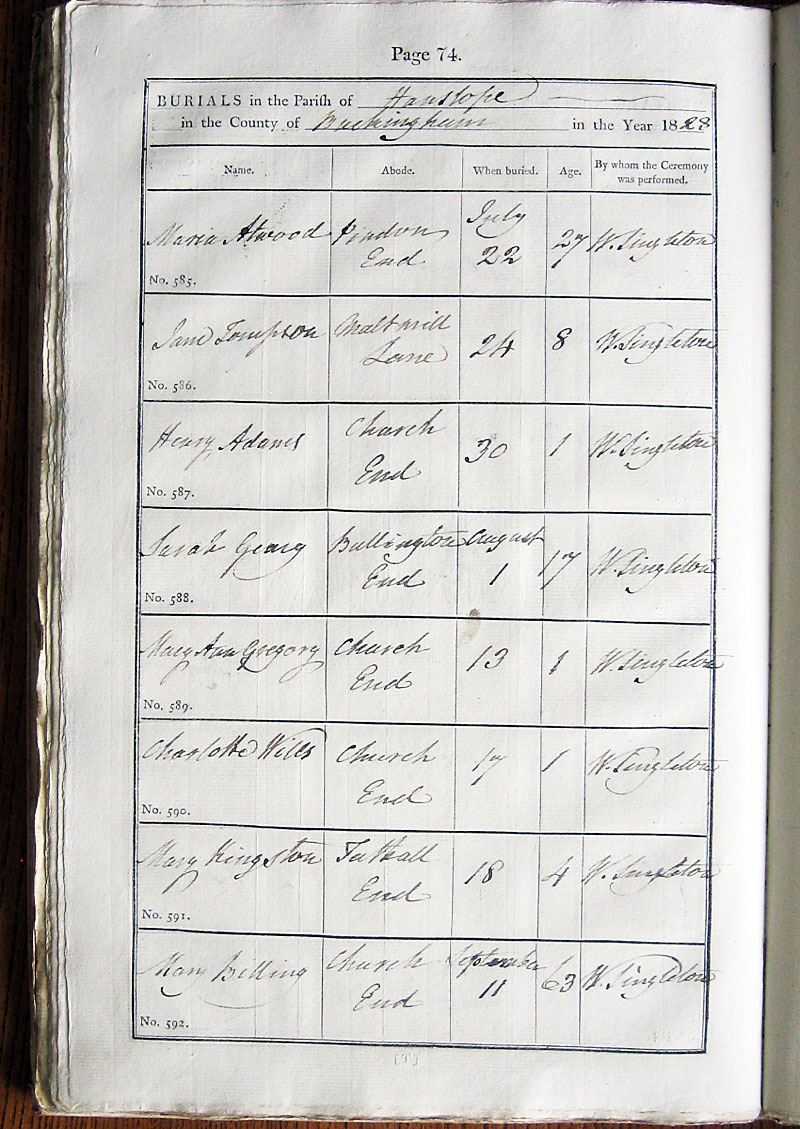 Page 74.
BURIALS in the Parish of Hanslope
in the County of Buckingham in the Year 1828
Name. Abode. When buried. Age. By whom the Ceremony was performed.
July
Maria Atwood Pindon 27 W. Singleton
End 22
No. 585.
Jane Tompson Malt mill 24 8 W. Singleton
Lane
No. 586.
Henry Adams Church 30 1 W. Singleton
End
No. 587.
Sarah Geary Bullington August 17 W. Singleton
End 1
No. 588.
Mary Ann Gregory Church 13 1 W. Singleton
End
No. 589.
Charlotte Wills Church 17 1 W. Singleton
End
No. 590.
Mary Kingston Tathall 18 4 W. Singleton
End
No. 591.
Mary Billing Church September 63 W. Singleton
End 11
No. 592.